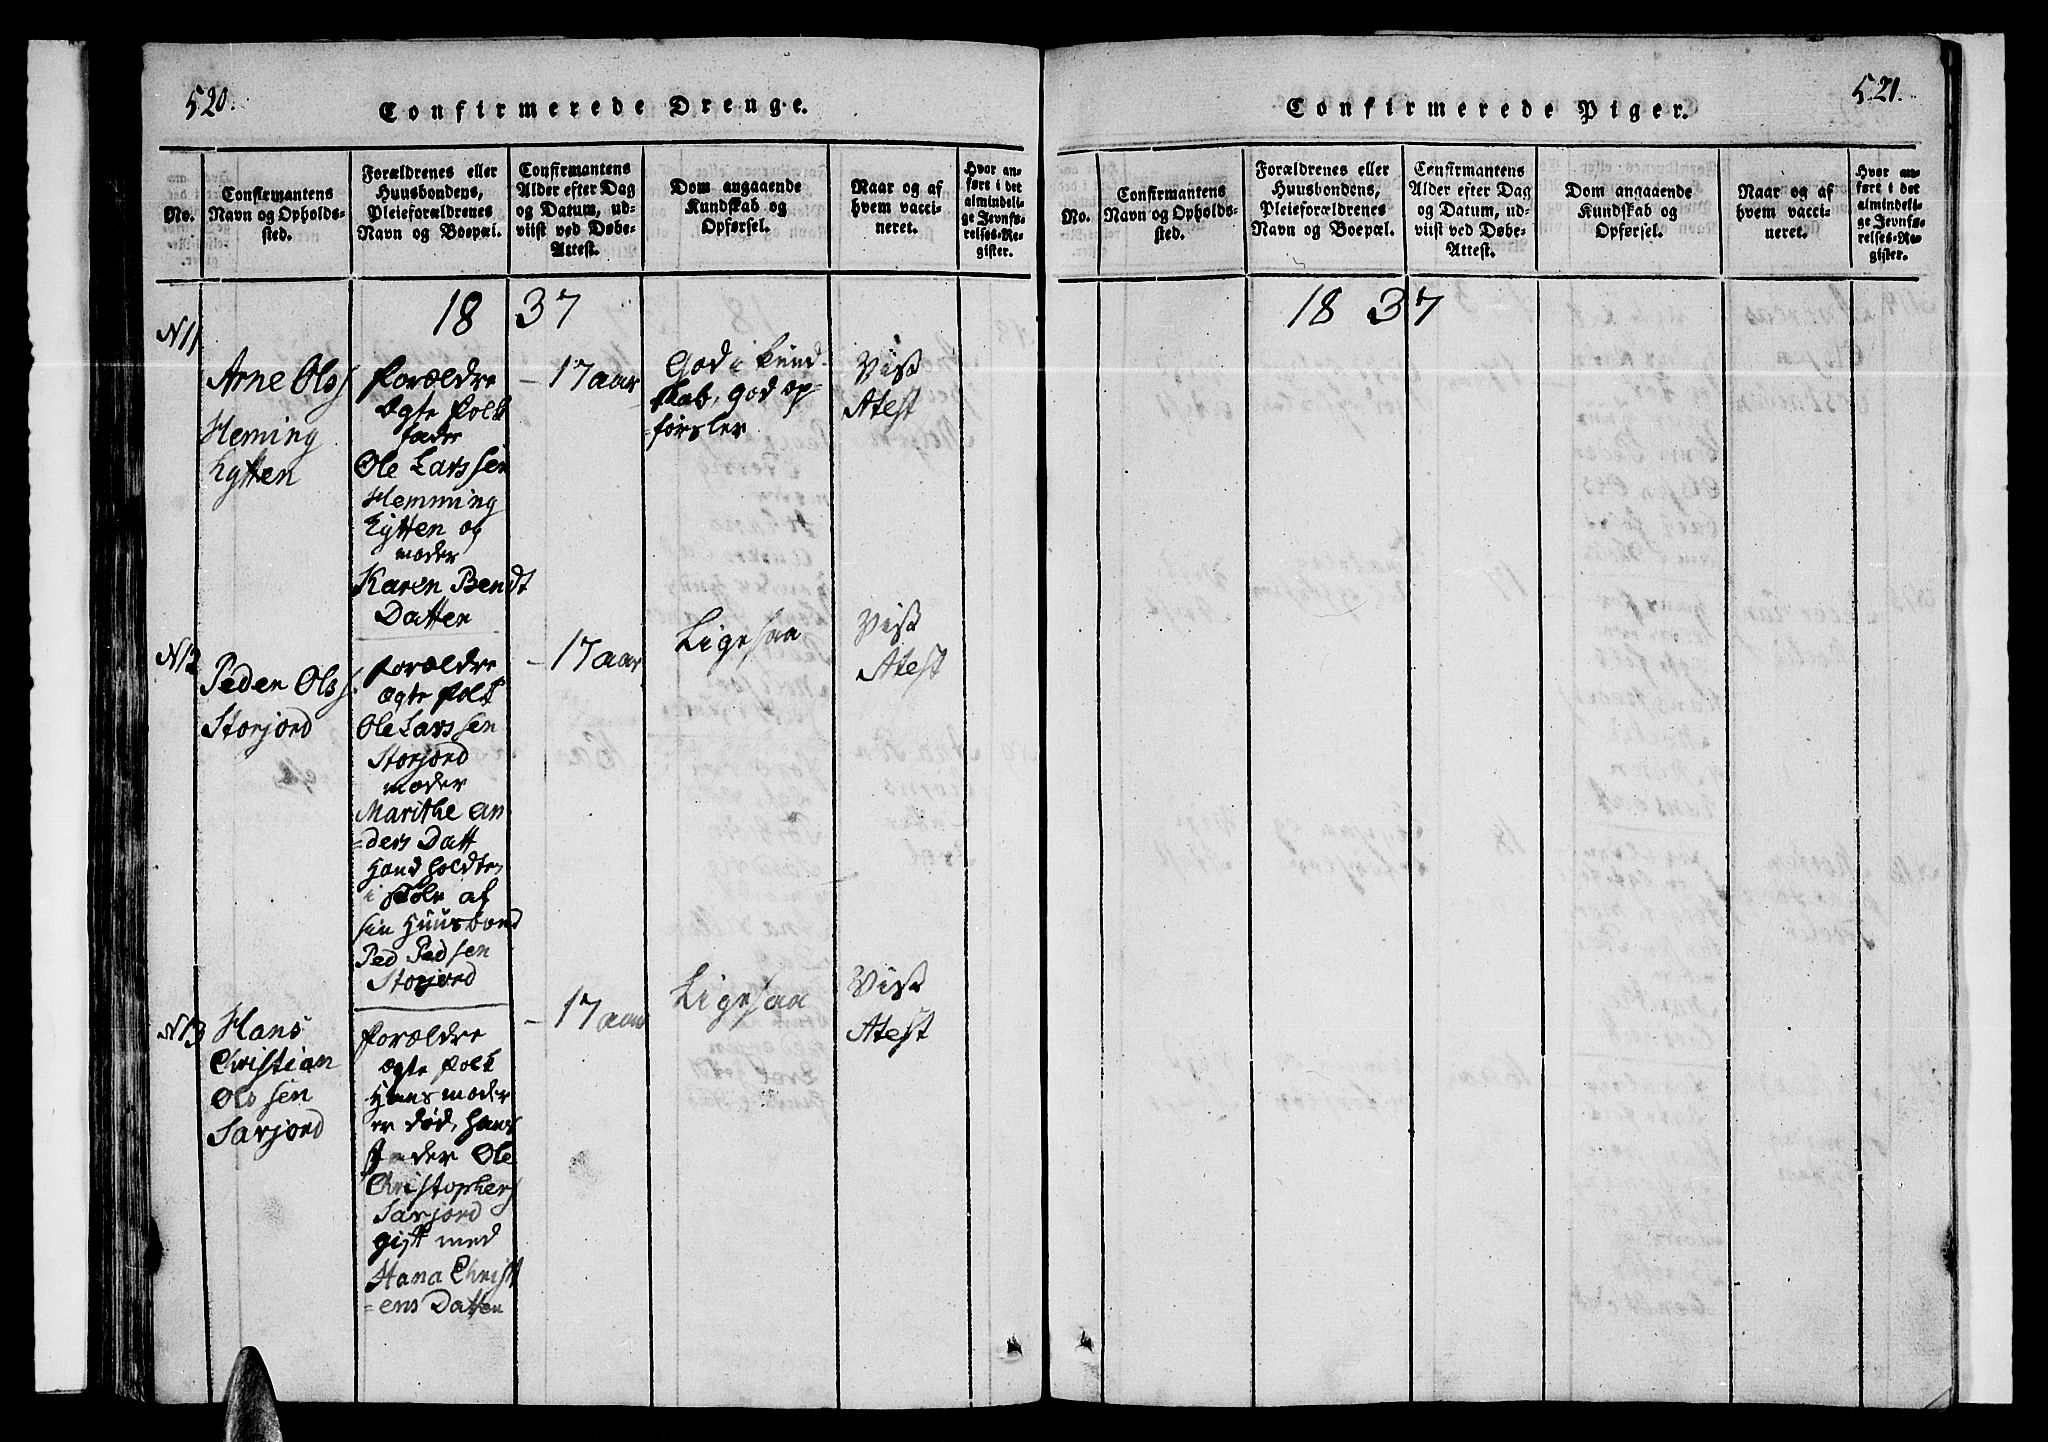 520.
Confirmerede Drenge.
No.
Confirmantens
Navn og Opholds-
sted.
Forældrenes eller
Huusbondens,
Pleieforældrenes
Navn og Boepæl.
Confirmantens
Alder efter Dag
og Datum, ud-
viist ved Døbe-
Attest.
Dom angaaende
Kundskab og
Opførsel.
Naar og af
hvem vacci-
neret.
Hvor an-
ført i det
almindeli-
ge Jevnfø-
relses-Re-
gister.
18 37
N11
Arne Olss
Heming
Hytten
Forældre
Egte Folk
fader
Ole Larssen
Hemming
Hytten og
moder
Karen Bendt
Datten
- 17 aar
God i kund
skab, god op=
=førsler
Vist
Atest
N12
Peden Olss.
Storjord
Forældre
Egte Folk
Ole Larssen
Storjord
moder
Marithe An
=ders Datt
i skole af
sin Huusbond
Ped Pedsen
Storjord
- 17 aar
Ligesaa
Vist
Atest
N13
Hans
Christian
Olssen
Sarjord
Forældre
Egte Folk
Hans moder
er død, hans
Fader Ole
Christophers
Sarjord
gift med
Hana Christ
=ens Datten
- 17 aar
Ligesaa
Vist
Atest
521.
Confirmerede Piger.
No.
Confirmantens
Navn og Opholds-
sted.
Forældrenes eller
Huusbondens,
Pleieforældrenes
Navn og Boepæl.
Confirmantens
Alder efter Dag
og Datum, ud-
viist ved Døbe-
Attest.
Dom angaaende
Kundskab og
Opførsel.
Naar og af
hvem vacci-
neret.
Hvor an-
ført i det
almindeli-
ge Jevnfø-
relses-Re-
gister.
18 37